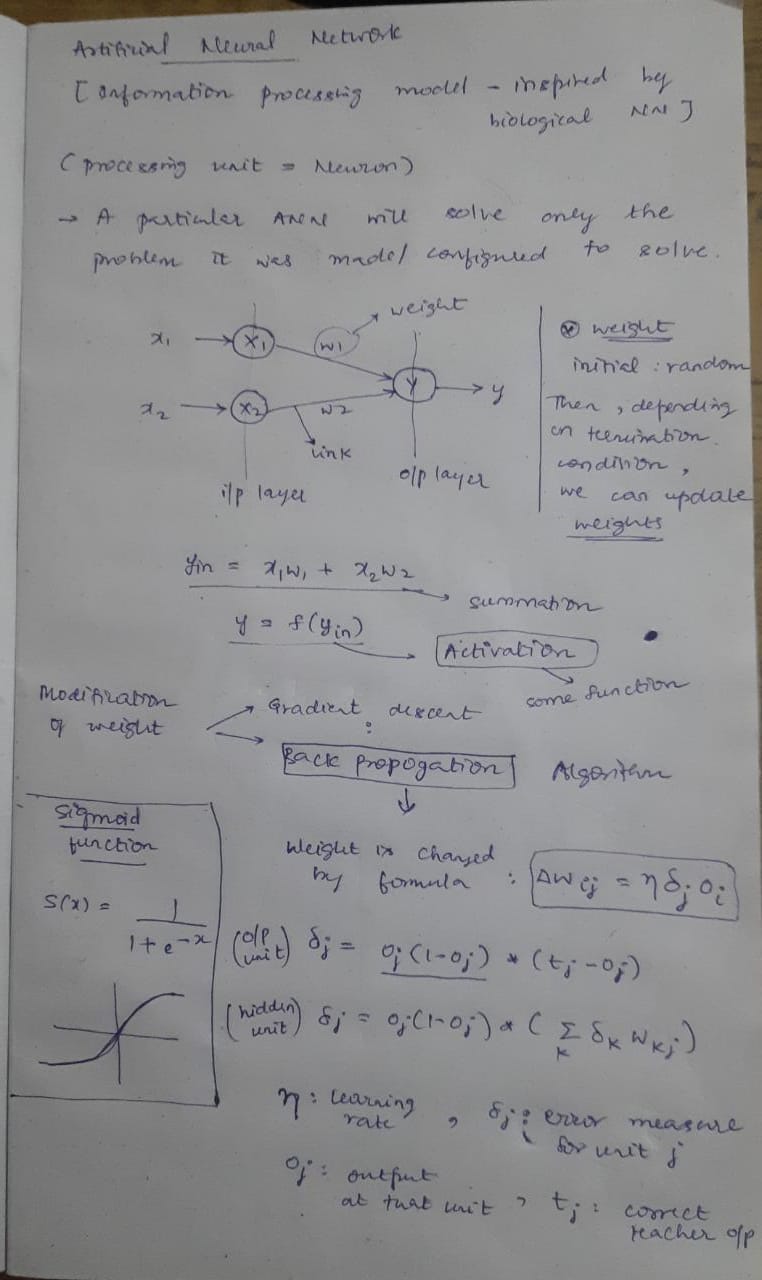 Artificial Neural Network
[ Information processing model - inspired by
biological NN ]
( processing unit = Neuron )
→ A particular ANN will solve only the
problem it was made/configured to solve.
x₁ → X₁ w₁ → weight
x₂ → X₂ w₂ Y → y
link
i/p layer
o/p layer
⊗ weight
initial : random
Then , depending
on termination
condition ,
we can update
weights
yin = x₁w₁ + x₂w₂ → summation
y = f(yin) → Activation
some function
Modification
of weight
→ Gradient descent
→ Back propogation Algorithm
Weight is changed
by formula : ΔWij = η δj oi
Sigmoid
function
S(x) = 1 / 1 + e^-x
(o/p unit) δj = oj (1-oj) * (tj - oj)
(hidden unit) δj = oj(1-oj) * ( Σk δk Wkj )
η : learning rate , δj : error measure
for unit j
oj : output
at that unit , tj : correct
teacher o/p